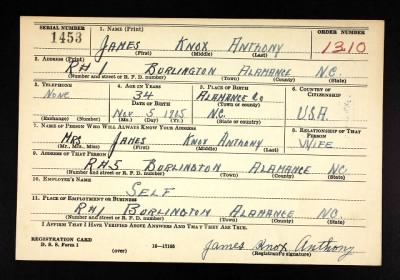 SERIAL NUMBER 1. NAME (Print) ORDER NUMBER
1453 JAMES KNOX ANTHONY 1310
(First) (Middle) (Last)
2. ADDRESS (Print)
RH 1 BURLINGTON ALAMANCE N.C.
(Number and street or R. F. D. number) (Town) (County) (State)
3. TELEPHONE 4. AGE IN YEARS 5. PLACE OF BIRTH 6. COUNTRY OF CITIZENSHIP
NONE 34 ALAMANCE Co
DATE OF BIRTH (Town or county)
NOV 5 1905 NC U.S.A.
(Exchange) (Number) (Mo.) (Day) (Yr.) (State or country)
7. NAME OF PERSON WHO WILL ALWAYS KNOW YOUR ADDRESS 8. RELATIONSHIP OF THAT PERSON
MRS JAMES KNOX ANTHONY WIFE
(Mr., Mrs., Miss) (First) (Middle) (Last)
9. ADDRESS OF THAT PERSON
BURLINGTON ALAMANCE NC
(Number and street or R. F. D. number) (Town) (County) (State)
10. EMPLOYER'S NAME
SELF
11. PLACE OF EMPLOYMENT OR BUSINESS
RH 1 BURLINGTON ALAMANCE NC.
(Number and street or R. F. D. number) (Town) (County) (State)
I AFFIRM THAT I HAVE VERIFIED ABOVE ANSWERS AND THAT THEY ARE TRUE.
REGISTRATION CARD
D. S. S. Form 1 (over) 16—17105 James Knox Anthony
(Registrant's signature)